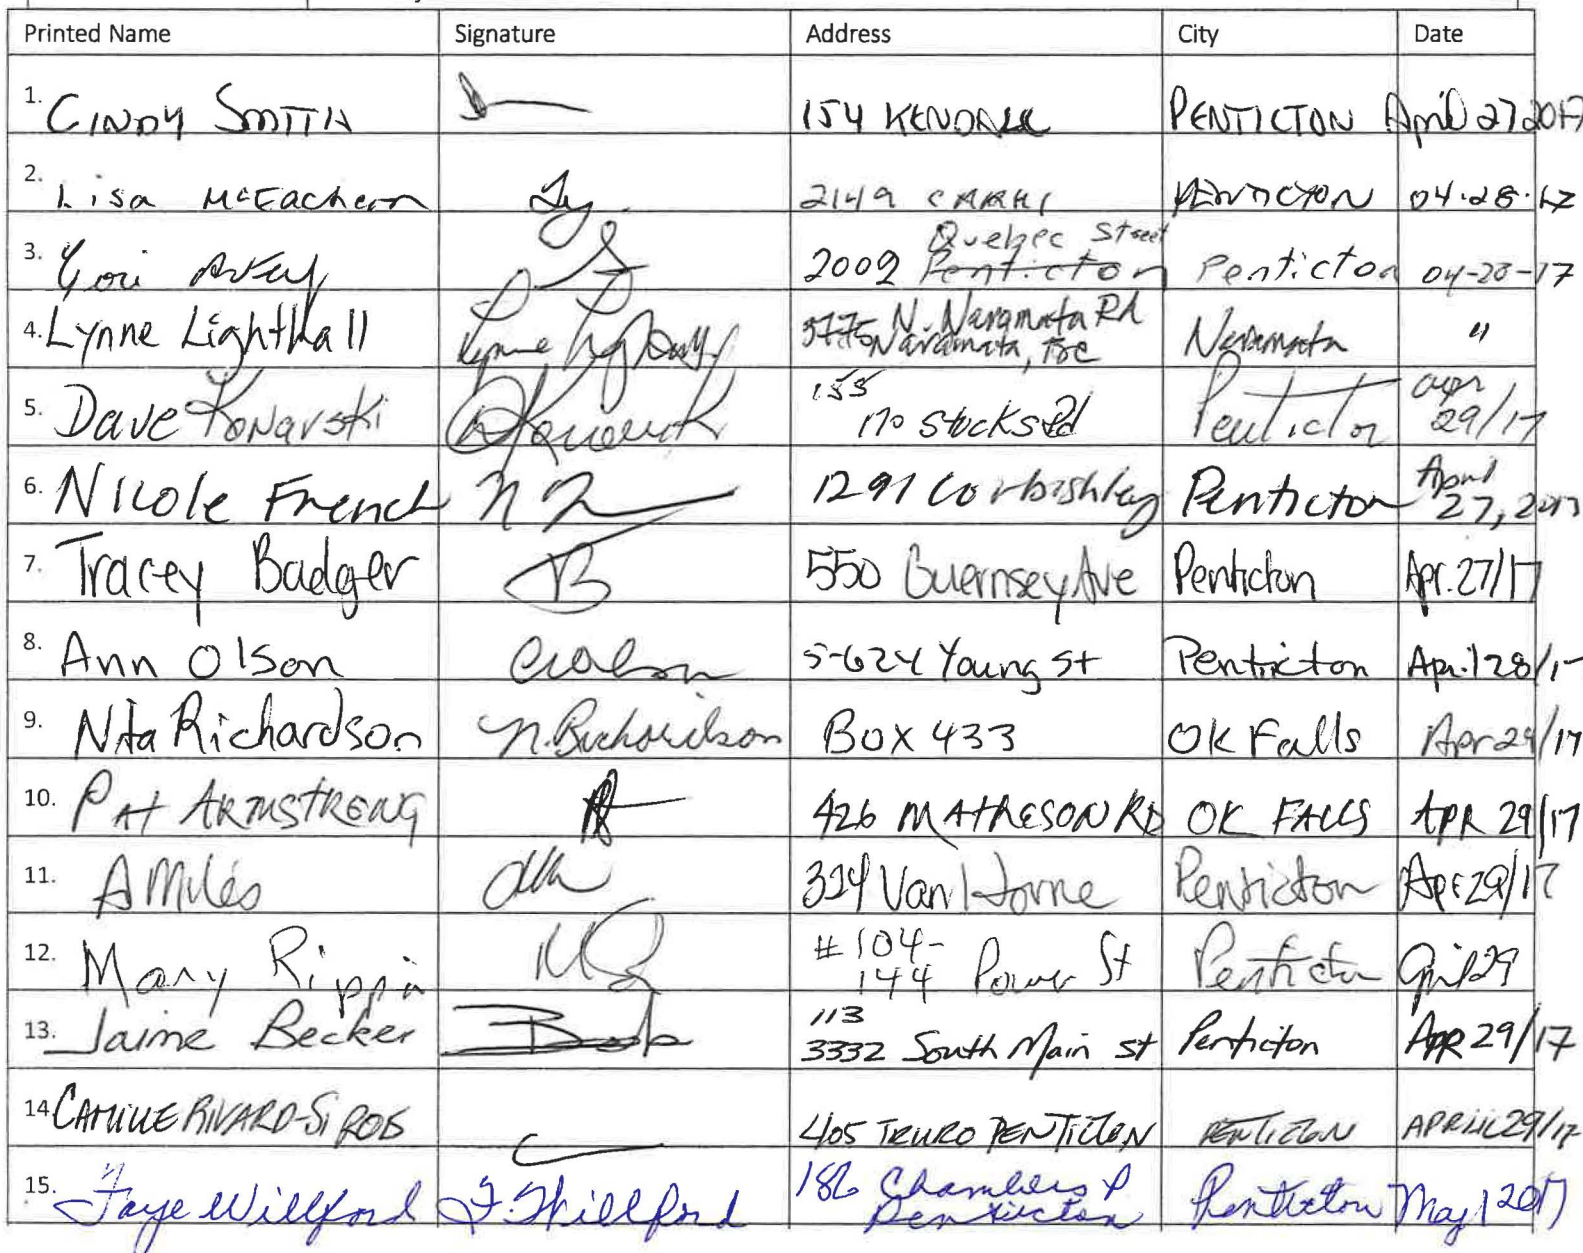 Printed Name Signature Address City Date
1. CINDY SMITH 154 KENDALL PENTICTON April 27 2017
2. Lisa McEachern 2149 CARMI PENTICTON 04.28.17
Quebec Street
3. Lori 2002 Penticton Penticton 04-28-17
4. Lynne Lighthall N. Naramata Rd Naramata, BC Naramata "
5. Dave Konarski 155 170 Stocks Rd Penticton apr 29/17
6. Nicole French 1291 Corbishley Penticton April 27, 2017
7. Tracey Badger B 550 Guernsey Ave Penticton Apr. 27/17
8. Ann Olson 5-624 Young St Penticton April 28/17
9. Nita Richardson N. Richardson Box 433 OK Falls Apr 29/17
10. PAT ARMSTRONG 426 MATHESON RD OK FALLS APR 29/17
11. A Miles 314 Van Horne Penticton Apr 29/17
12. Mary Rippin #104-
144 Power St Penticton April 29
13. Jaime Becker 113
3332 South Main St Penticton APR 29/17
14. CAMILLE RIVARD-SIROIS 405 TRURO PENTICTON PENTICTON APRIL 29/17
15. Faye Willford F. Willford 186 Chambers P
Penticton Penticton May 1 2017